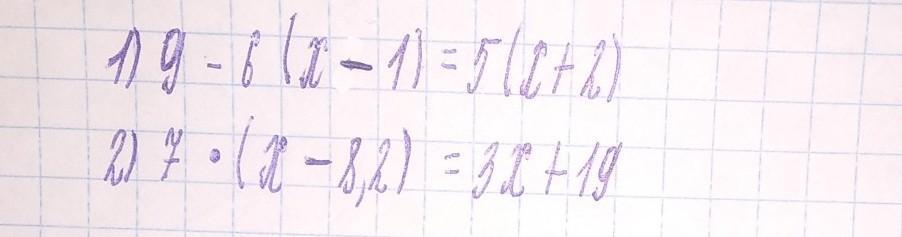 1) 9 - 6 (x - 1) = 5(x + 2)
2) 7 · (x - 8,2) = 3x + 19